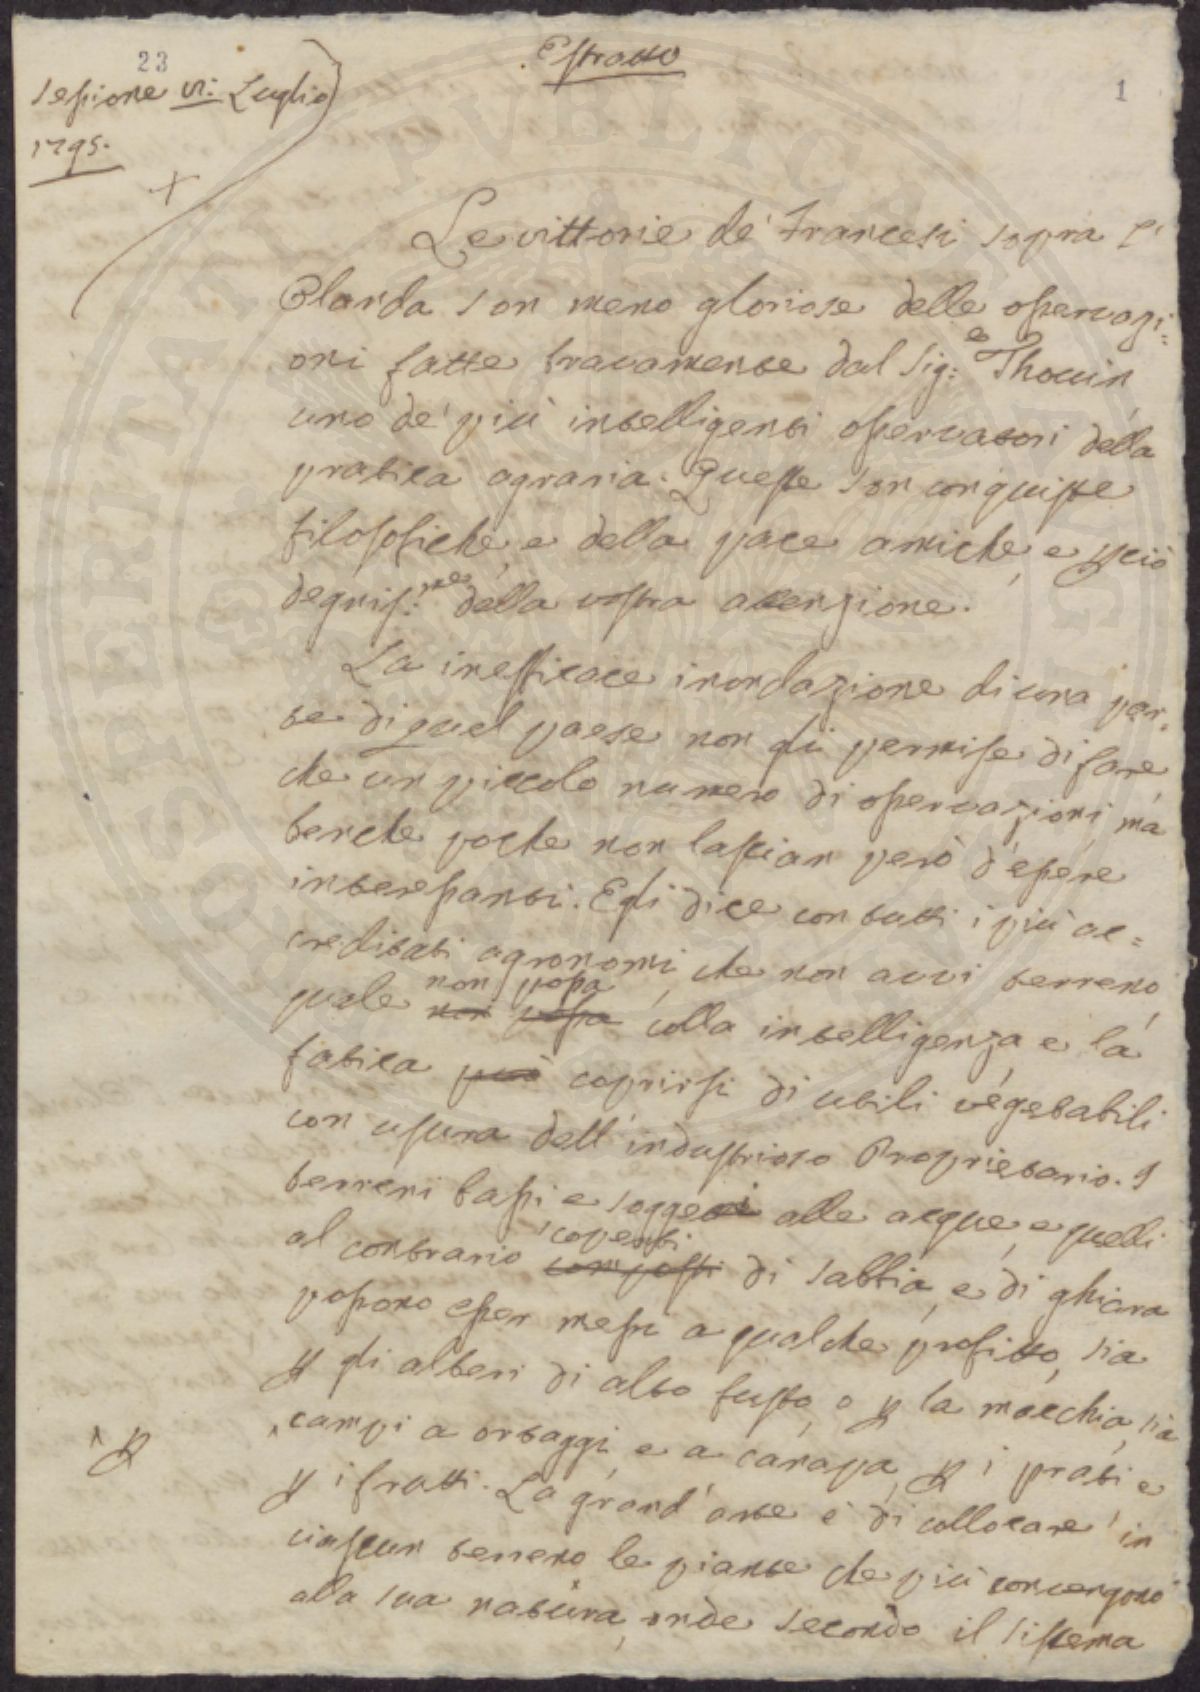 23
Estratto
1
Sessione VI: Luglio
1795.
Le vittorie de' Francesi sopra l'
Olanda son meno gloriose delle osservazi=
oni fatte bravamente dal Sig:e Thouin
uno de' più intelligenti osservatori della
pratica agraria. Queste son conquiste
filosofiche, e della pace amiche, e perciò
degnis:me della vostra attenzione.
La inefficace inondazione di una par=
te di quel paese non gli permise di fare
che un piccolo numero di osservazioni, ma
benche poche non lascian però d'essere
interessanti. Egli dice con tutti i più ac=
creditati agronomi, che non avvi terreno,
non possa
quale non possa colla intelligenza, e la
fatica può coprirsi di utili vegetabili
con usura dell'industrioso Proprietario. I
terreni bassi e soggetti alle acque, e quelli
coperti
al contrario composti di sabbia, e di ghiara
possono esser messi a qualche profitto, sia
per gli alberi di alto fusto, o per la macchia, sia
per
campi a ortaggi, e a canapa, per i prati e
per i frutti. La grand'arte è di collocare in
ciascun terreno le piante che più convengono
alla sua natura, onde secondo il sistema
PUBLICAE PROSPERITATI